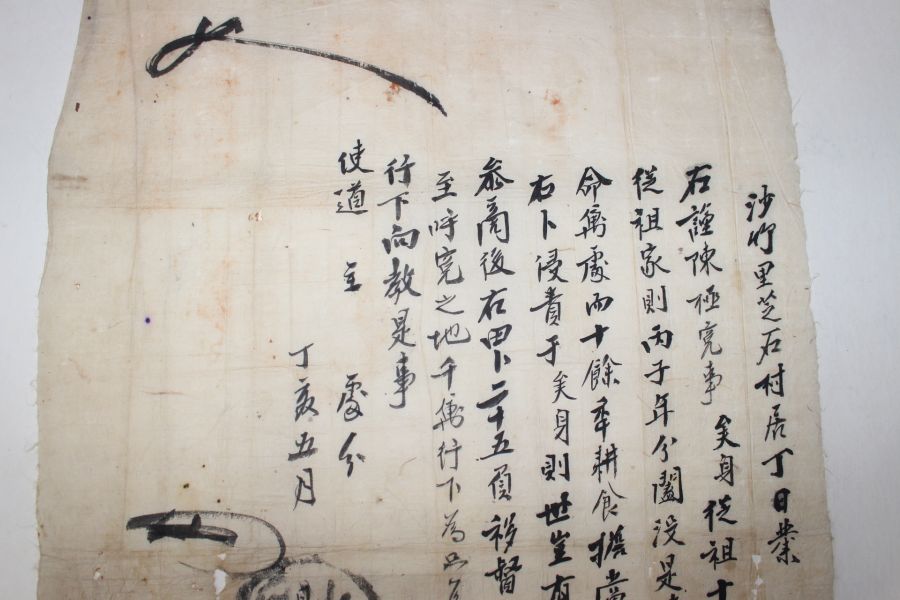 沙竹里芝石村居丁日業
右謹陳極寃事 矣身從祖十
從祖家則丙子年分闔没是
命萬處而十餘年耕食擔當
右卜侵責于矣身則世豈有
叅商後右田卜二十五負移督
至呼寃之地千萬行下為只
行下向教是事
使道 主 處分
丁亥五月